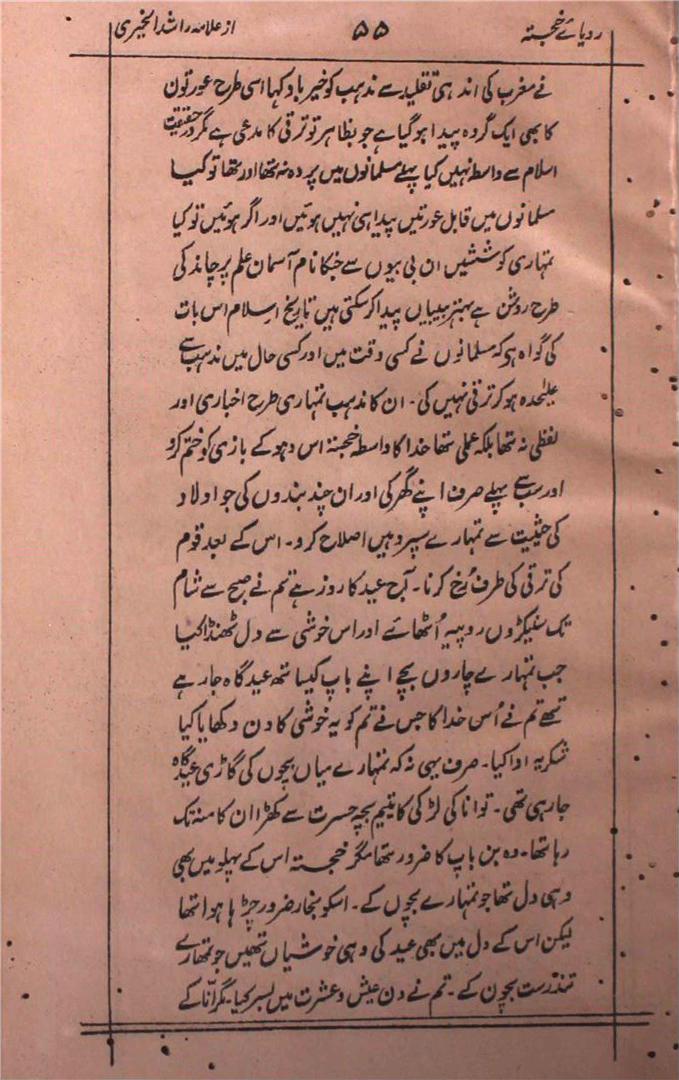 رویائے خجستہ ۵۵ از علامہ راشد الخیری
نے مغرب کی اندھی تقلید سے مذہب کو خیر باد کہا اسی طرح عورتون
کا بھی ایک گروہ پیدا ہو گیا ہے جو بظاہر تو ترقی کا مدعی ہے مگر درحقیقت
اسلام سے واسطہ نہیں کیا پہلے مسلمانوں میں پردہ نہ تھا اور تھا تو کیا
مسلمانوں میں قابل عورتیں پیدا ہی نہیں ہوئیں اور اگر ہوئیں تو کیا
تمہاری کوششیں ان بی بیوں سے جنکا نام آسمان علم پر چاند کی
طرح روشن ہے بہتر بیبیاں پیدا کر سکتی ہیں تاریخ اسلام اس بات
کی گواہ ہو کہ مسلمانوں نے کسی وقت میں اور کسی حال میں مذہب سے
علیٰحدہ ہو کر ترقی نہیں کی۔ ان کا مذہب تمہاری طرح اخباری اور
لفظی نہ تھا بلکہ عملی تھا خدا کا واسطہ خجستہ اس دہوکے بازی کو ختم کرو
اور سب سے پہلے صرف اپنے گھر کی اور ان چند بندوں کی جو اولاد
کی حیثیت سے تمہارے سپرد ہیں اصلاح کرو۔ اس کے بعد قوم
کی ترقی کی طرف رُخ کرنا۔ آج عید کا روز ہے تم نے صبح سے شام
تک سنیکڑوں روپیہ اُٹھائے اور اس خوشی سے دل ٹھنڈا کیا
جب تمہارے چاروں بچے اپنے باپ کیساتھ عیدگاہ جا رہے
تھے تم نے اُس خدا کا جس نے تم کو یہ خوشی کا دن دکھایا کیا
شکریہ ادا کیا۔ صرف یہی نہ کہ تمہارے میاں بچوں کی گاڑی عیدگاہ
جا رہی تھی۔ تو انا کی لڑکی کا یتیم بچہ حسرت سے کھڑا ان کا منہ تک
رہا تھا۔ وہ بن باپ کا ضرور تھا مگر خجستہ اس کے پہلو میں بھی
وہی دل تھا جو تمہارے بچوں کے۔ اسکو بخار ضرور چڑہا ہوا تھا
لیکن اس کے دل میں بھی عید کی وہی خوشیاں تھیں جو تمہارے
تندرست بچون کے۔ تم نے دن عیش و عشرت میں بسر کیا۔ مگر انّا کے